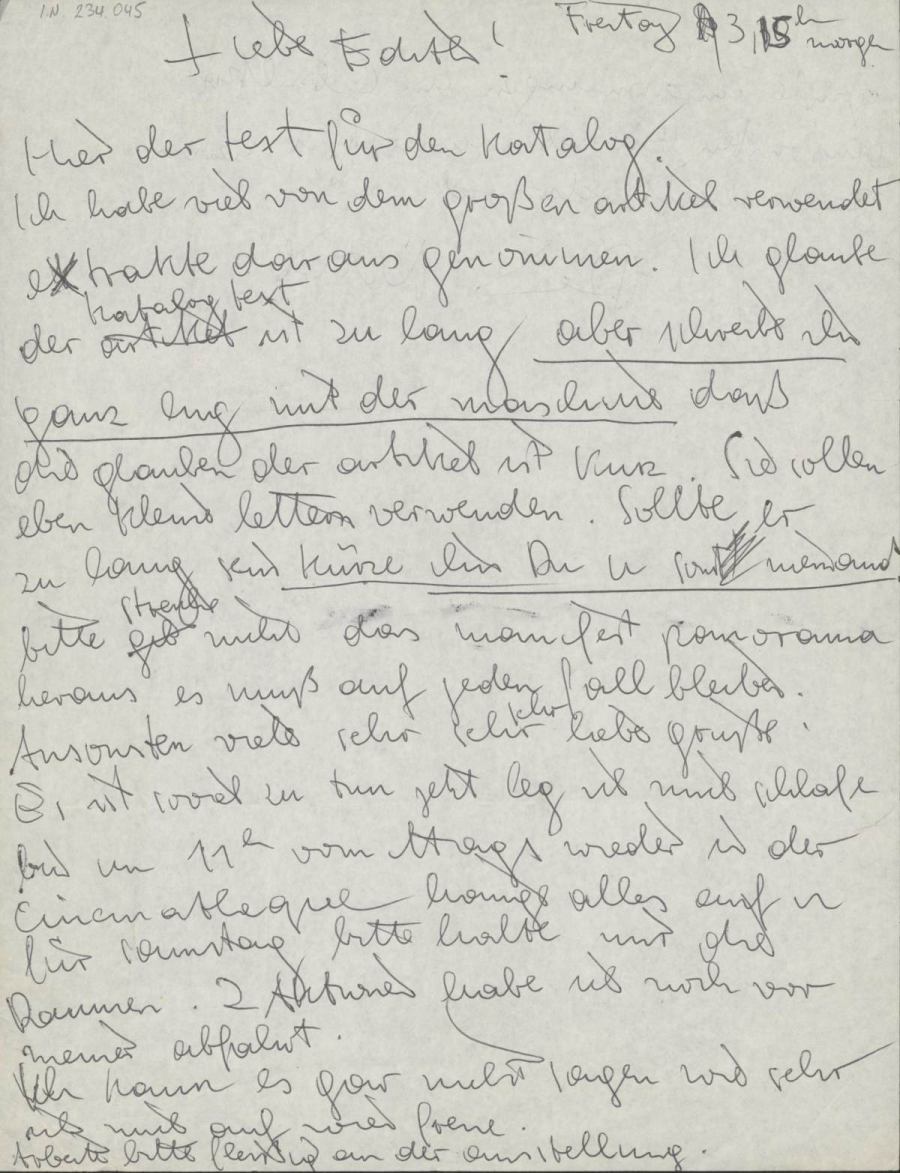 I.N. 234.045
Freitag 3,15h morgen
Liebe Edith!
Hier der text für den Katalog.
Ich habe viel von dem großen artikel verwendet
extrakte daraus genommen. Ich glaube
katalog text
der artikel ist zu lang, aber schreib ihn
ganz eng mit der maschine daß
die glauben der artikel ist kurz. Sie sollen
eben kleine lettern verwenden. Sollte er
zu lang sein kürze ihn Du u sonst niemand
streiche
bitte geb nicht das manifest panorama
heraus es muß auf jeden fall bleiben.
Ansonsten viele sehr sehr sehr liebe grüße.
Es ist soviel zu tun jetzt leg ich mich schlafe
bin um 11h vormittags wieder in der
Cinematheque hänge alles auf u
für samstag bitte halte mir die
Daumen. 2 Aktionen habe ich noch vor
meiner abfahrt.
Ich kann es gar nicht sagen wie sehr
ich mich auf wien freue.
Arbeite bitte fleißig an der ausstellung.